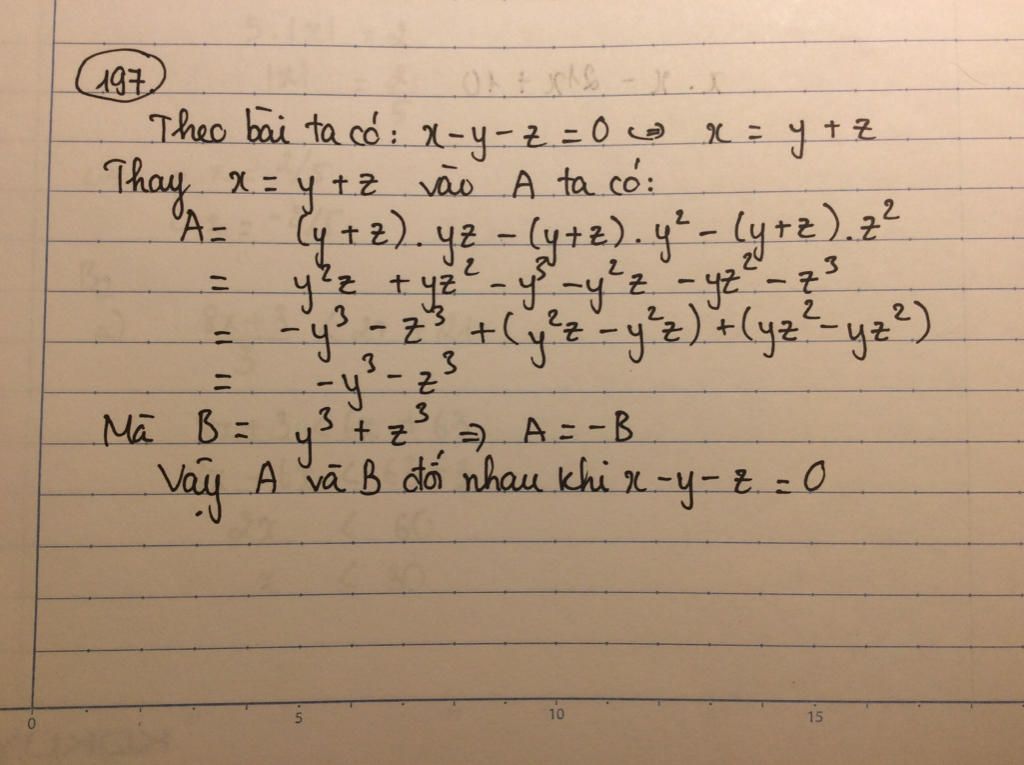 197
Theo bài ta có: x - y - z = 0 ⇔ x = y + z
Thay x = y + z vào A ta có:
A = (y + z) . yz - (y + z) . y² - (y + z) . z²
= y²z + yz² - y³ - y²z - yz² - z³
= -y³ - z³ + (y²z - y²z) + (yz² - yz²)
= -y³ - z³
Mà B = y³ + z³ ⇒ A = -B
Vậy A và B đối nhau khi x - y - z = 0
0 5 10 15